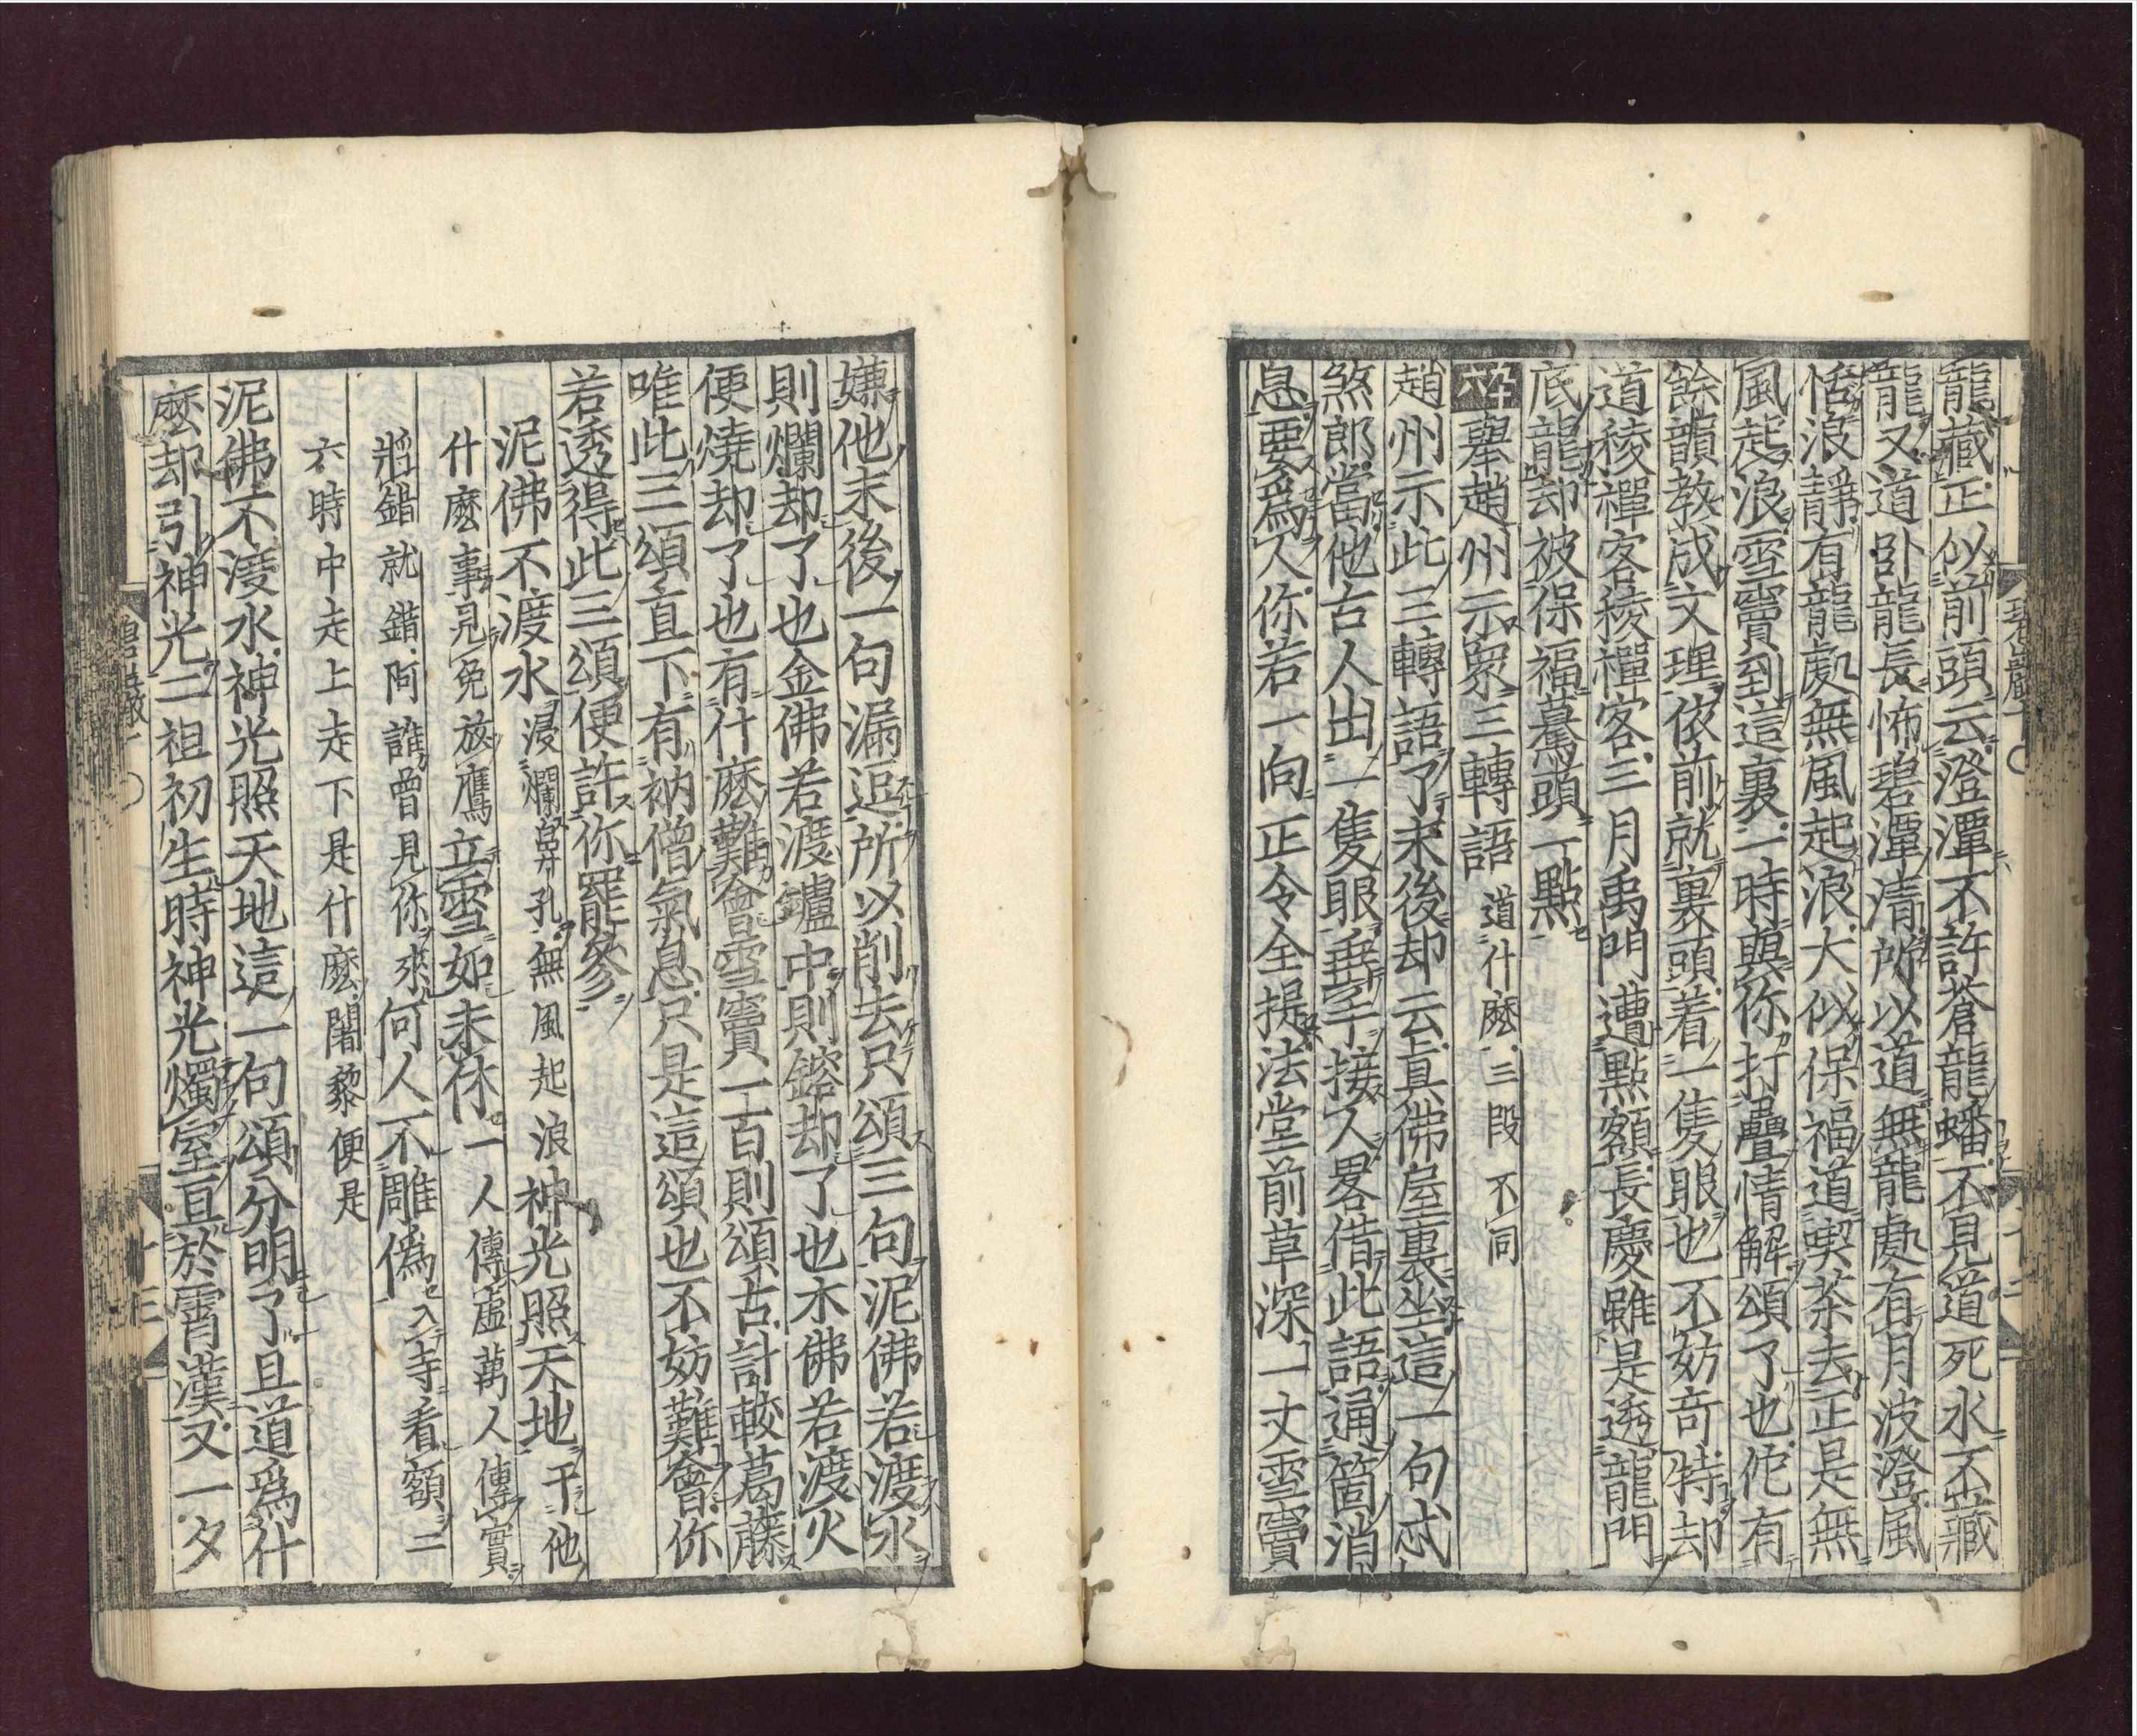 龍藏正似前頭云澄潭不許蒼龍蟠不見道死水不藏
龍又道卧龍長怖碧潭清所以道無龍處有月波澄風
恬浪靜有龍處無風起浪大似保福道喫茶去正是無
風起浪雪竇到這裏一時與你打疊情解頌了也佗有
餘韻教成文理依前就裏頭着一隻眼也不妨奇特却
道稜禪客稜禪客三月禹門遭點額長慶雖是透龍門
底龍却被保福驀頭一點
九十六 舉趙州示衆三轉語 道什麽三段不同
趙州示此三轉語了末後却云真佛屋裏坐這一句忒
煞郎當他古人出一隻眼垂手接人畧借此語通箇消
息要爲人你若一向正令全提法堂前草深一丈雪竇
嫌他末後一句漏逗所以削去只頌三句泥佛若渡水
則爛却了也金佛若渡鑪中則鎔却了也木佛若渡火
便燒却了也有什麽難會雪竇一百則頌古計較葛藤
唯此三頌直下有衲僧氣息只是這頌也不妨難會你
若透得此三頌便許你罷參
泥佛不渡水 浸爛鼻孔無風起浪 神光照天地 干他
什麽事見兔放鷹 立雪如未休 一人傳虛萬人傳實
將錯就錯阿誰曾見你來 何人不雕僞 入寺看額二
六時中走上走下是什麽闍黎便是
泥佛不渡水神光照天地這一句頌分明了且道爲什
麽却引神光二祖初生時神光燭室亘於霄漢又一夕